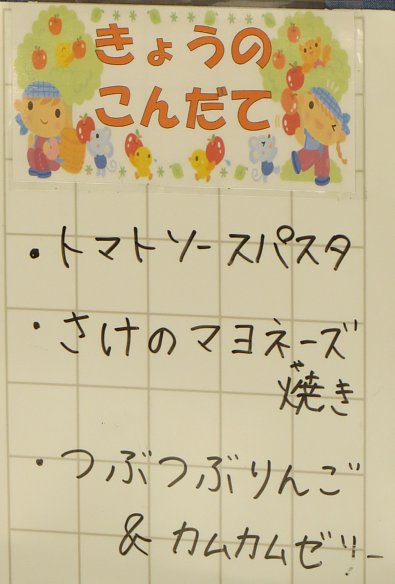 きょうの
こんだて
・トマトソースパスタ
・さけのマヨネーズ
や
焼き
・つぶつぶりんご
& カムカムゼリー